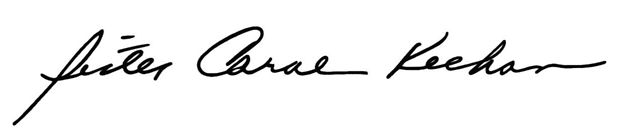 Sister Carol Keehan